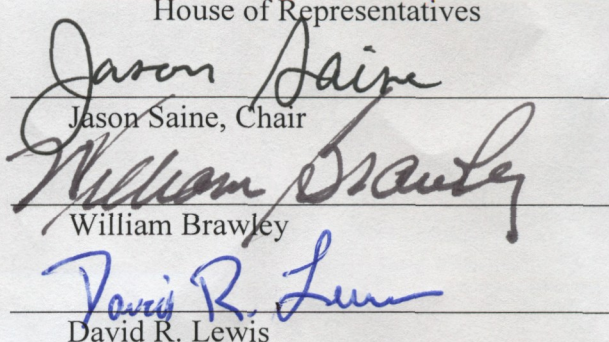 House of Representatives
Jason Saine
Jason Saine, Chair
William Brawley
William Brawley
David R. Lewis
David R. Lewis